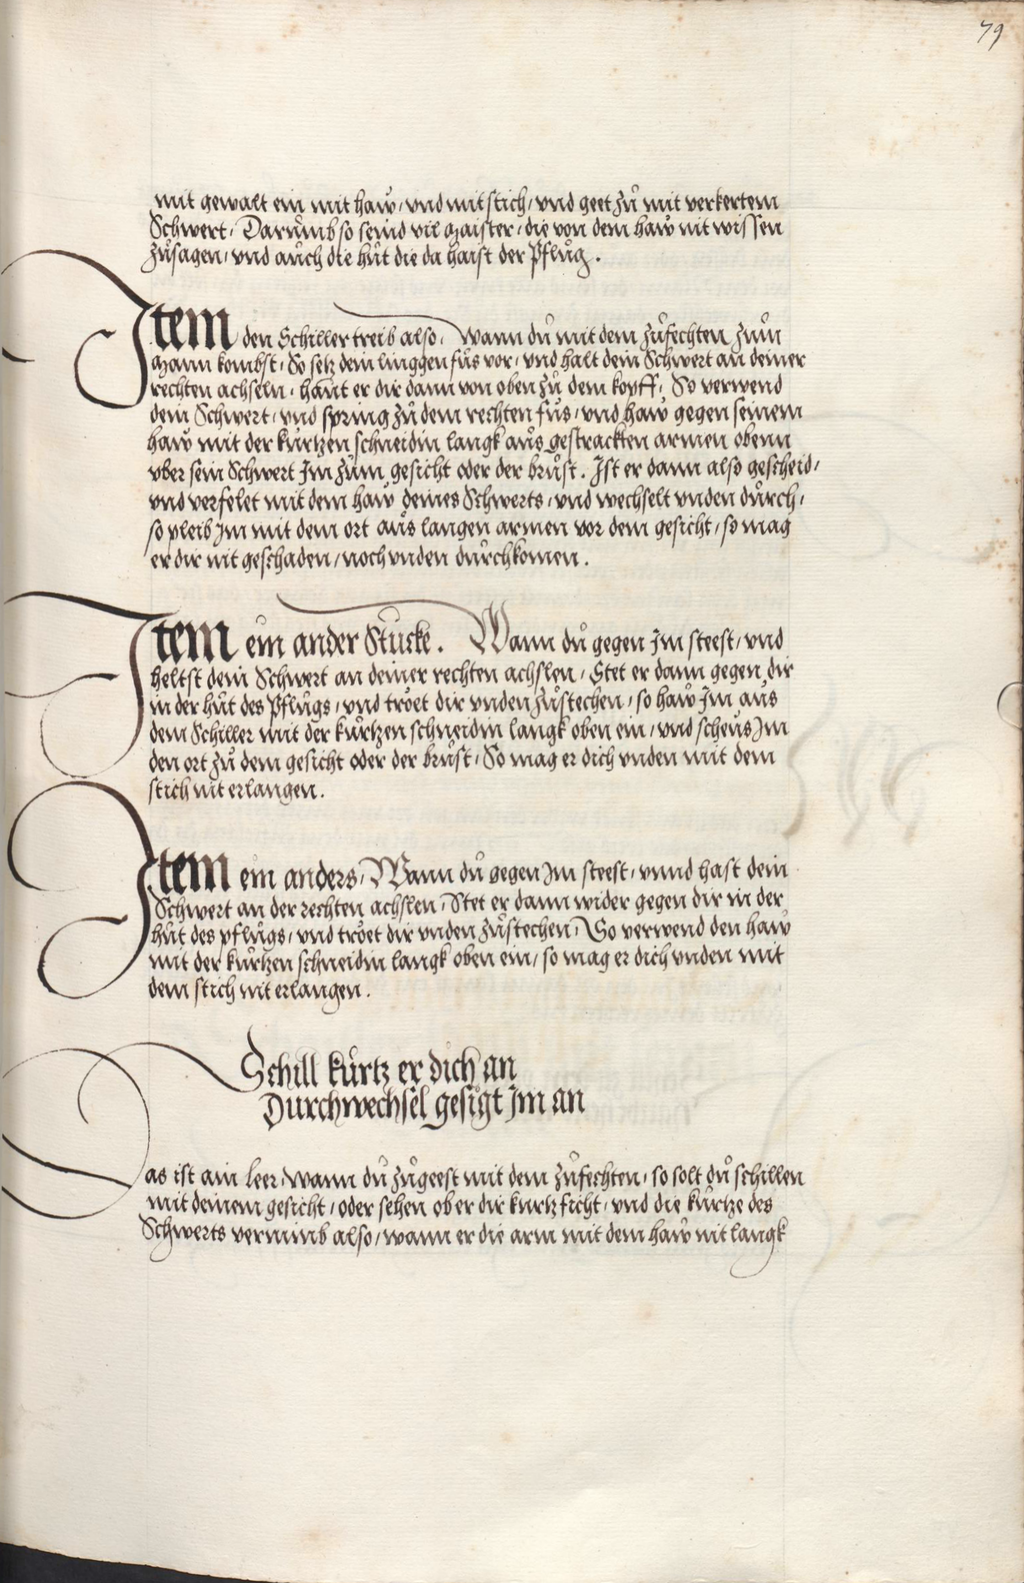 79
mit gewalt ein mit haw / vnd mit stich / vnd geet zů mit verkertem
Schwert / Darůmb so seind vil maister / die von dem haw nit wissen
zůsagen / vnd aůch die hůt die da haist der Pflůg .
Item den Schiller treib also / Wann dů mit dem zůfechten zům
Mann kombst / So setz dein linggen fůs vor / vnd halt dein Schwert an deiner
rechten achseln / haůt er dir dann von oben zů dem kopff / So verwend
dein Schwert / vnd spring zů dem rechten fůs / vnd haw gegen seinem
haw mit der kůrtzen schneidin langk aůs gestrackten armen obenn
vber sein Schwert Im zům gesicht oder der brůst . Ist er dann also gescheid /
vnd verfelet mit dem haw deines Schwerts / vnd wechselt vnden důrch /
so pleib Im mit dem ort aůs langen armen vor dem gesicht / so mag
er dir nit geschaden / noch vnden důrchkomen .
Item ein ander Stucke . Wann dů gegen Im steest / vnd
heltst dein Schwert an deiner rechten achslen / Stet er dann gegen dir
in der hůt des Pflůgs / vnd tröet dir vnden zůstechen / so haw Im aůs
dem Schiller mit der kůrtzen schneidin langk oben ein / vnd scheůs Im
den ort zů dem gesicht oder der brůst / So mag er dich vnden mit dem
stich nit erlangen .
Item ein anders / Wann dů gegen Im steest / vnnd hast dein
Schwert an der rechten achslen / Stet er dann wider gegen dir in der
hůt des pflůgs / vnd tröet dir vnden zůstechen / So verwend den haw
mit der kůrtzen schneidin langk oben ein / so mag er dich vnden mit
dem stich nit erlangen .
Schill kůrtz er dich an
Durchwechsel gesigt Im an
Das ist ain leer / wann dů zůgeest mit dem zůfechten / so solt dů schillen
mit deinem gesicht / oder sehen ob er dir kurtz ficht / vnd die kůrtze des
Schwerts vernimb also / wann er die arm mit dem haw nit langk